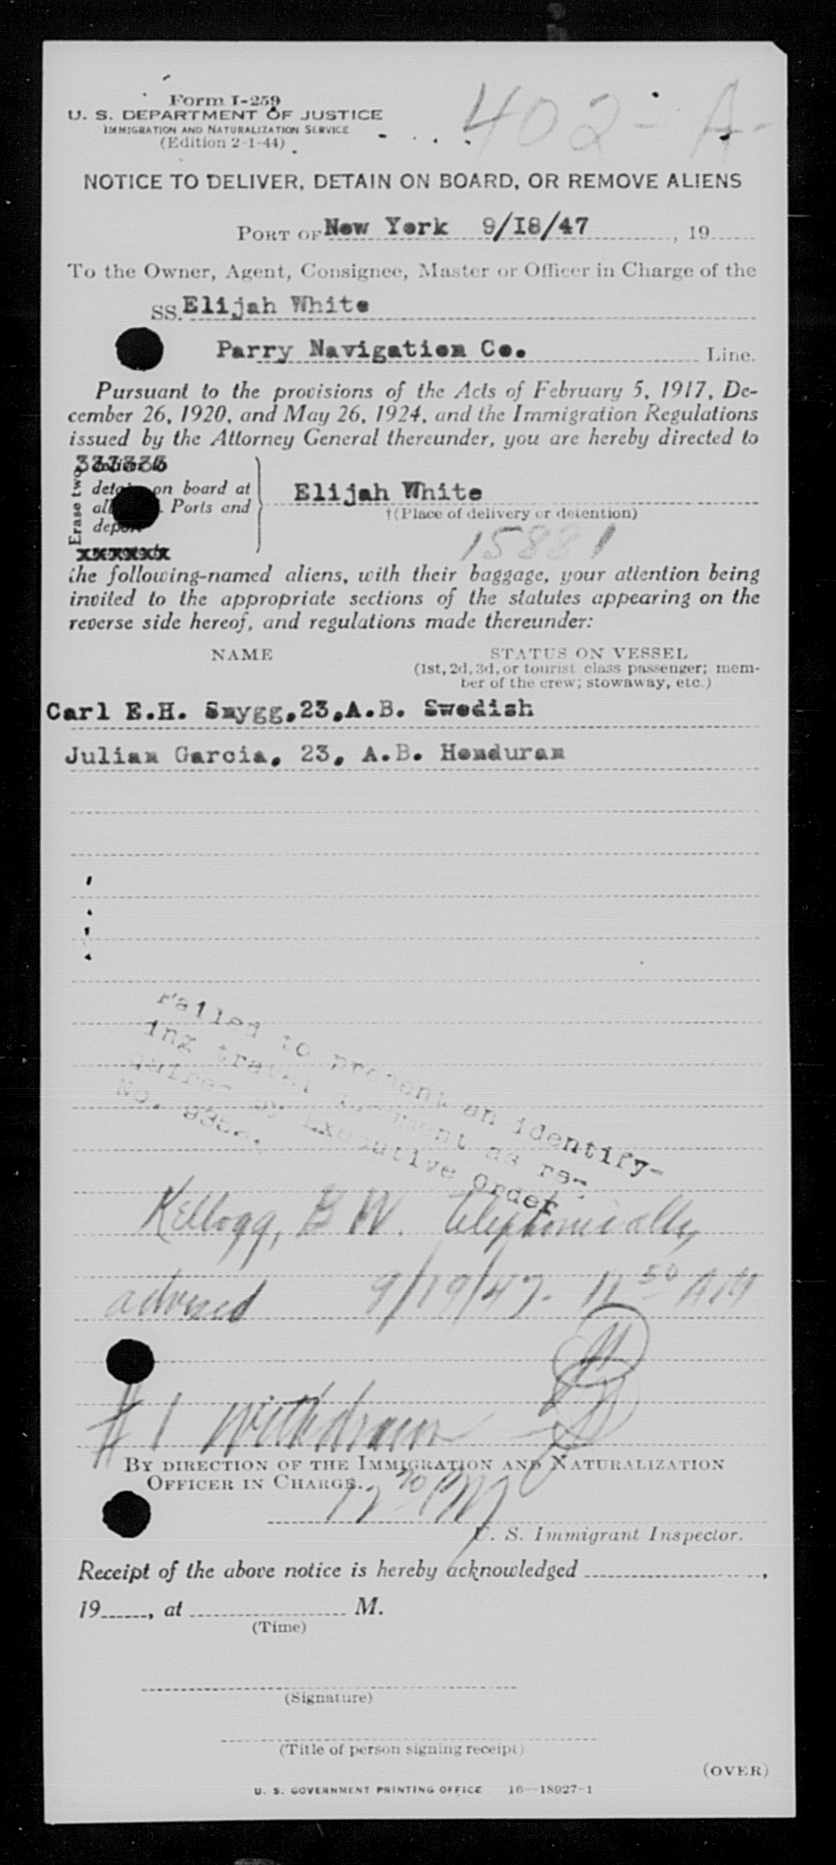 Form I-259
U. S. DEPARTMENT OF JUSTICE
IMMIGRATION AND NATURALIZATION SERVICE
(Edition 2-1-44)
402-A-
NOTICE TO DELIVER, DETAIN ON BOARD, OR REMOVE ALIENS
PORT OF New York 9/18/47, 19
To the Owner, Agent, Consignee, Master or Officer in Charge of the
SS. Elijah White
Parry Navigation Co. Line.
Pursuant to the provisions of the Acts of February 5, 1917, De-
cember 26, 1920, and May 26, 1924, and the Immigration Regulations
issued by the Attorney General thereunder, you are hereby directed to
Erase two
on board at
Ports and
Elijah White
†(Place of delivery or detention)
15881
the following-named aliens, with their baggage, your attention being
invited to the appropriate sections of the statutes appearing on the
reverse side hereof, and regulations made thereunder:
NAME
STATUS ON VESSEL
(1st, 2d, 3d, or tourist class passenger; mem-
ber of the crew; stowaway, etc.)
Carl E.H. Snygg, 23, A.B. Swedish
Julian Garcia, 23, A.B. Honduran
Failed to present an identify-
ing travel document as re-
quired by Executive Order
No.
Kellogg, B W. telephonically
advised 9/19/47- 11 50 AM
#1 withdrawn
BY DIRECTION OF THE IMMIGRATION AND NATURALIZATION
OFFICER IN CHARGE.
U. S. Immigrant Inspector.
Receipt of the above notice is hereby acknowledged ,
19 , at M.
(Time)
(Signature)
(Title of person signing receipt)
(OVER)
U. S. GOVERNMENT PRINTING OFFICE 16—18027-1